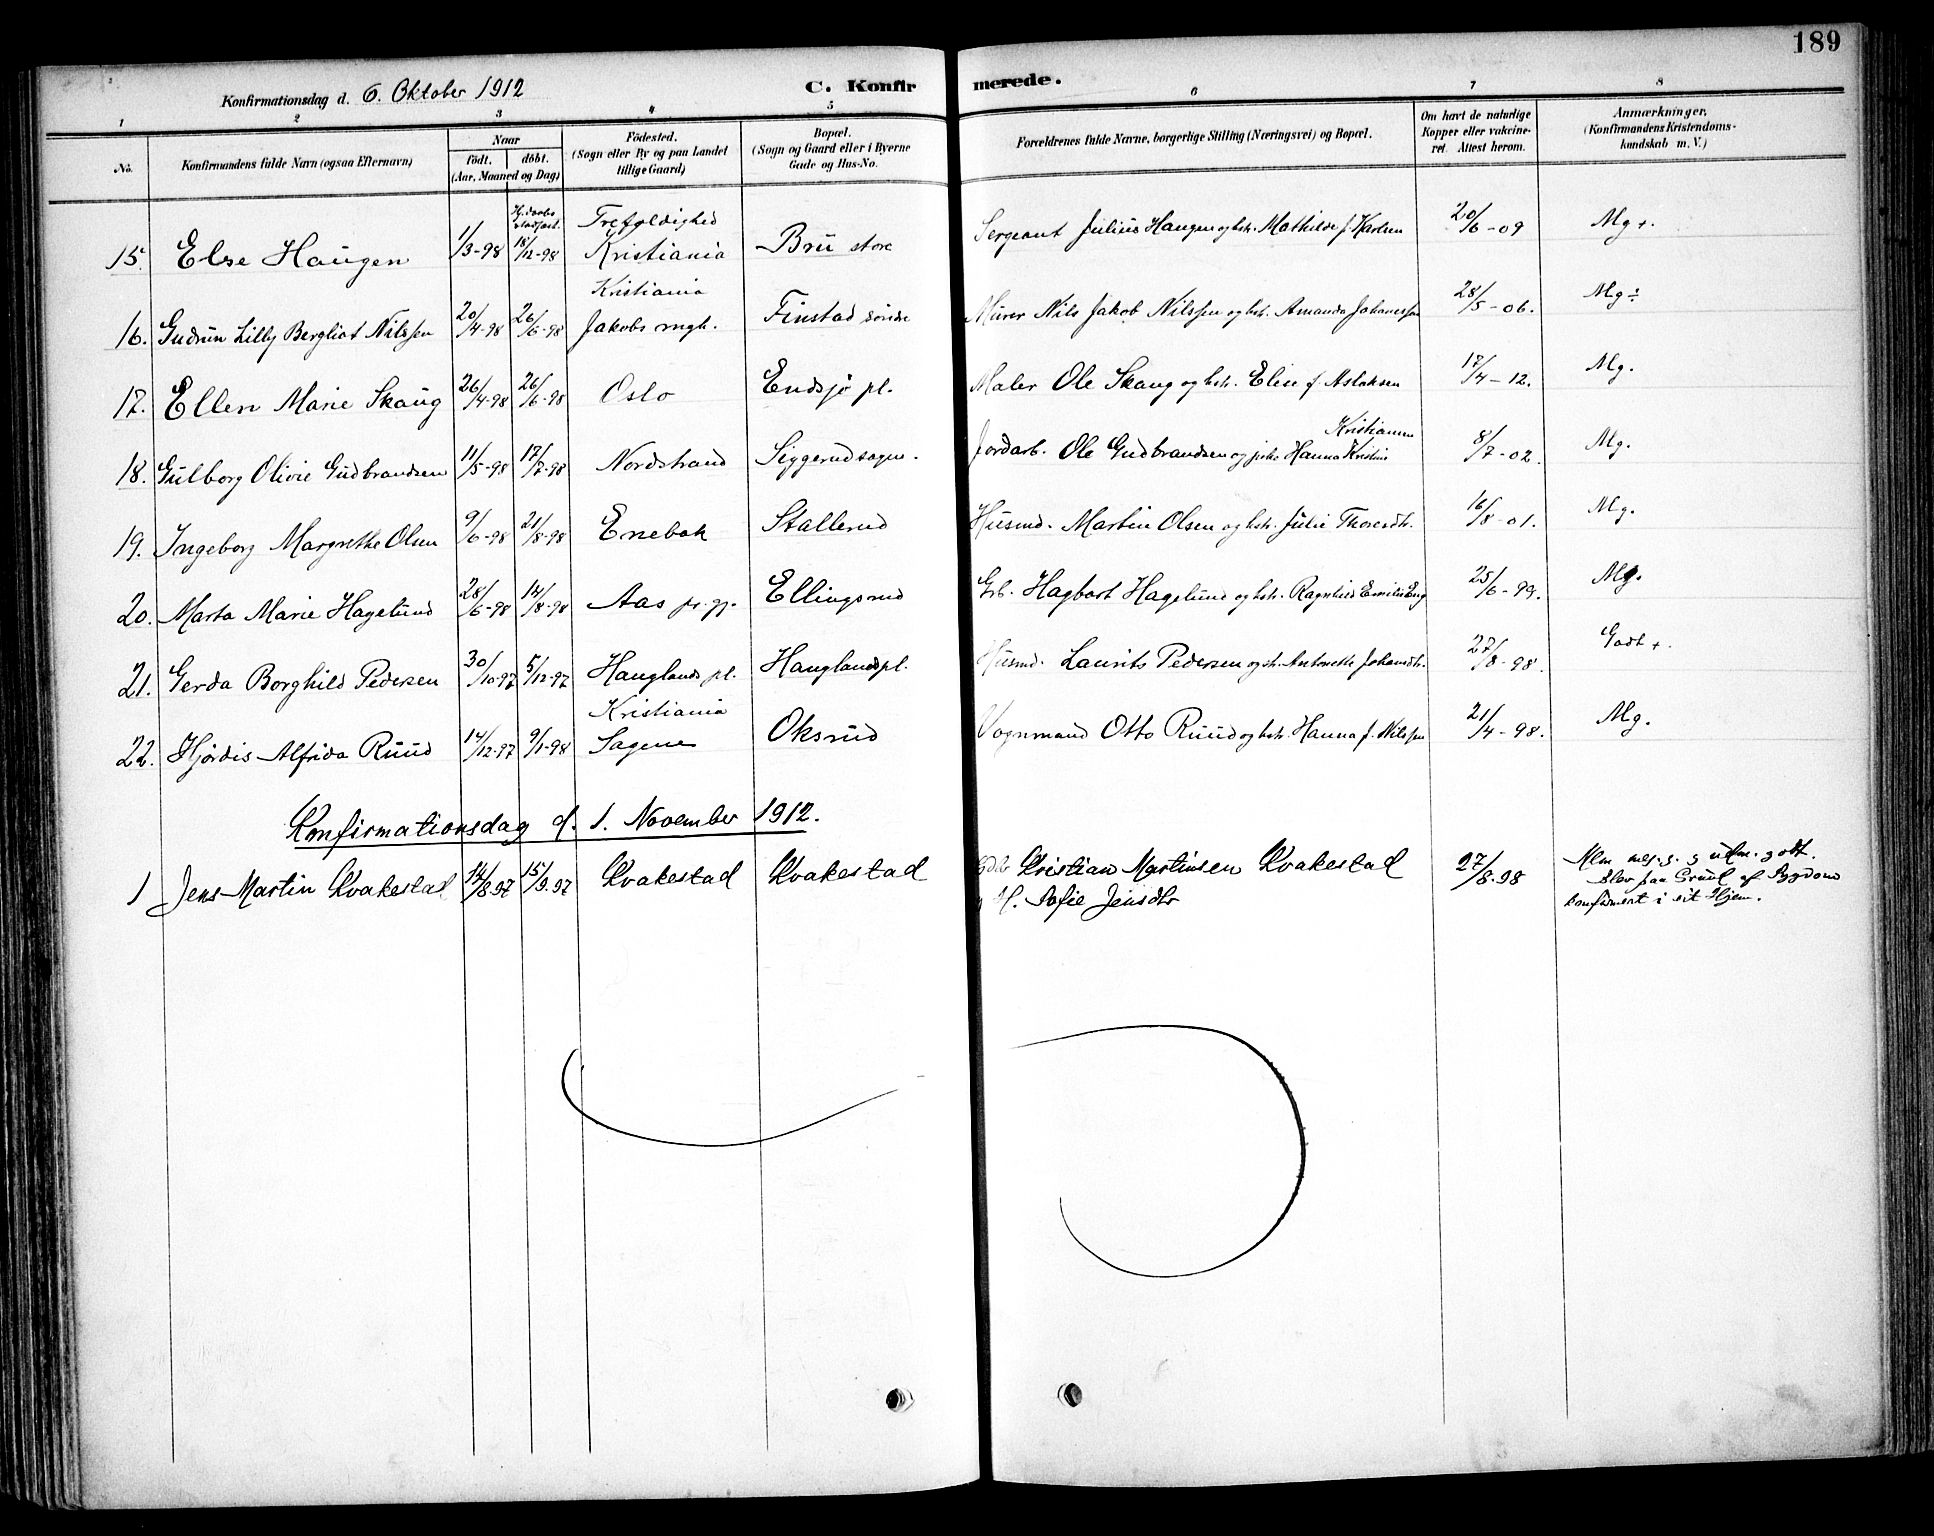 189
Konfirmationsdag d. 6. Oktober 1912 C. Konfirmerede.
1 2 3 4 5 6 7 8
No. Konfirmandens fulde Navn (ogsaa Efternavn) Naar født. døbt. (Aar, Maaned og Dag) Fødested. (Sogn eller By og paa Landet tillige Gaard) Bopæl. (Sogn og Gaard eller i Byerne Gade og Hus-No. Forældrenes fulde Navne, borgerlige Stilling (Næringsvei) og Bopæl. Om havt de naturlige Kopper eller vakcineret. Attest herom. Anmærkninger. (Konfirmandens Kristendomskundskab m. V.)
15. Else Haugen 1/3-98 18/12-98 Trefoldighed Kristiania Bru store Sergeant Julius Haugen og hstr. Mathilde f. Karlsen 20/6-09 Mg+.
16. Gudrun Lilly Bergliot Nilssen 20/4-98 26/6-98 Kristiania Jakobs mgh. Finstad søndre Murer Nils Jakob Nilssen og hstr. Amanda Johanessen 28/5-06. Mg÷
17. Ellen Marie Skaug 26/4-98 26/6-98 Oslo Endsjø pl. Maler Ole Skaug og hstr. Elise f. Aslaksen 17/4-12. Mg.
18. Gulborg Olivie Gudbrandsen 11/5-98 17/7-98 Nordstrand Siggerud sogn. Jordarb. Ole Gudbrandsen og Hanna Kristin Kristiansen 8/7-02. Mg.
19. Ingeborg Margrethe Olsen 9/6-98 21/8-98 Enebak Stallerud Husmd. Martin Olsen og hstr. Julie Thorerdtr. 16/8-01. Mg.
20. Marta Marie Hagelund 28/6-98 14/8-98 Aas pr.gj. Ellingsrud Grb. Hagbart Hagelund og hstr. Ragnhild Emilie Eng 25/6-99. Mg.
21. Gerda Borghild Pedersen 30/10-97 5/12-97 Hauglands pl. Hauglandspl. Husmd. Laurits Pedersen og hstr. Antonette Johansdtr. 27/8-98. Godt+.
22. Hjørdis Alfrida Ruud 14/12-97 9/1-98 Kristiania Sagene Oksrud Vognmand Otto Ruud og hstr. Hanna f. Nilssen 21/4-98. Mg.
Konfirmationsdag d. 1. November 1912.
1 Jens Martin Kvakestad 14/8.97 15/9.97 Kvakestad Kvakestad Kristian Martinsen Kvakestad 27/8.98
H. Sofie Jensdtr
Blev paa Grund af Sygdom
konfirmert i sit Hjem.